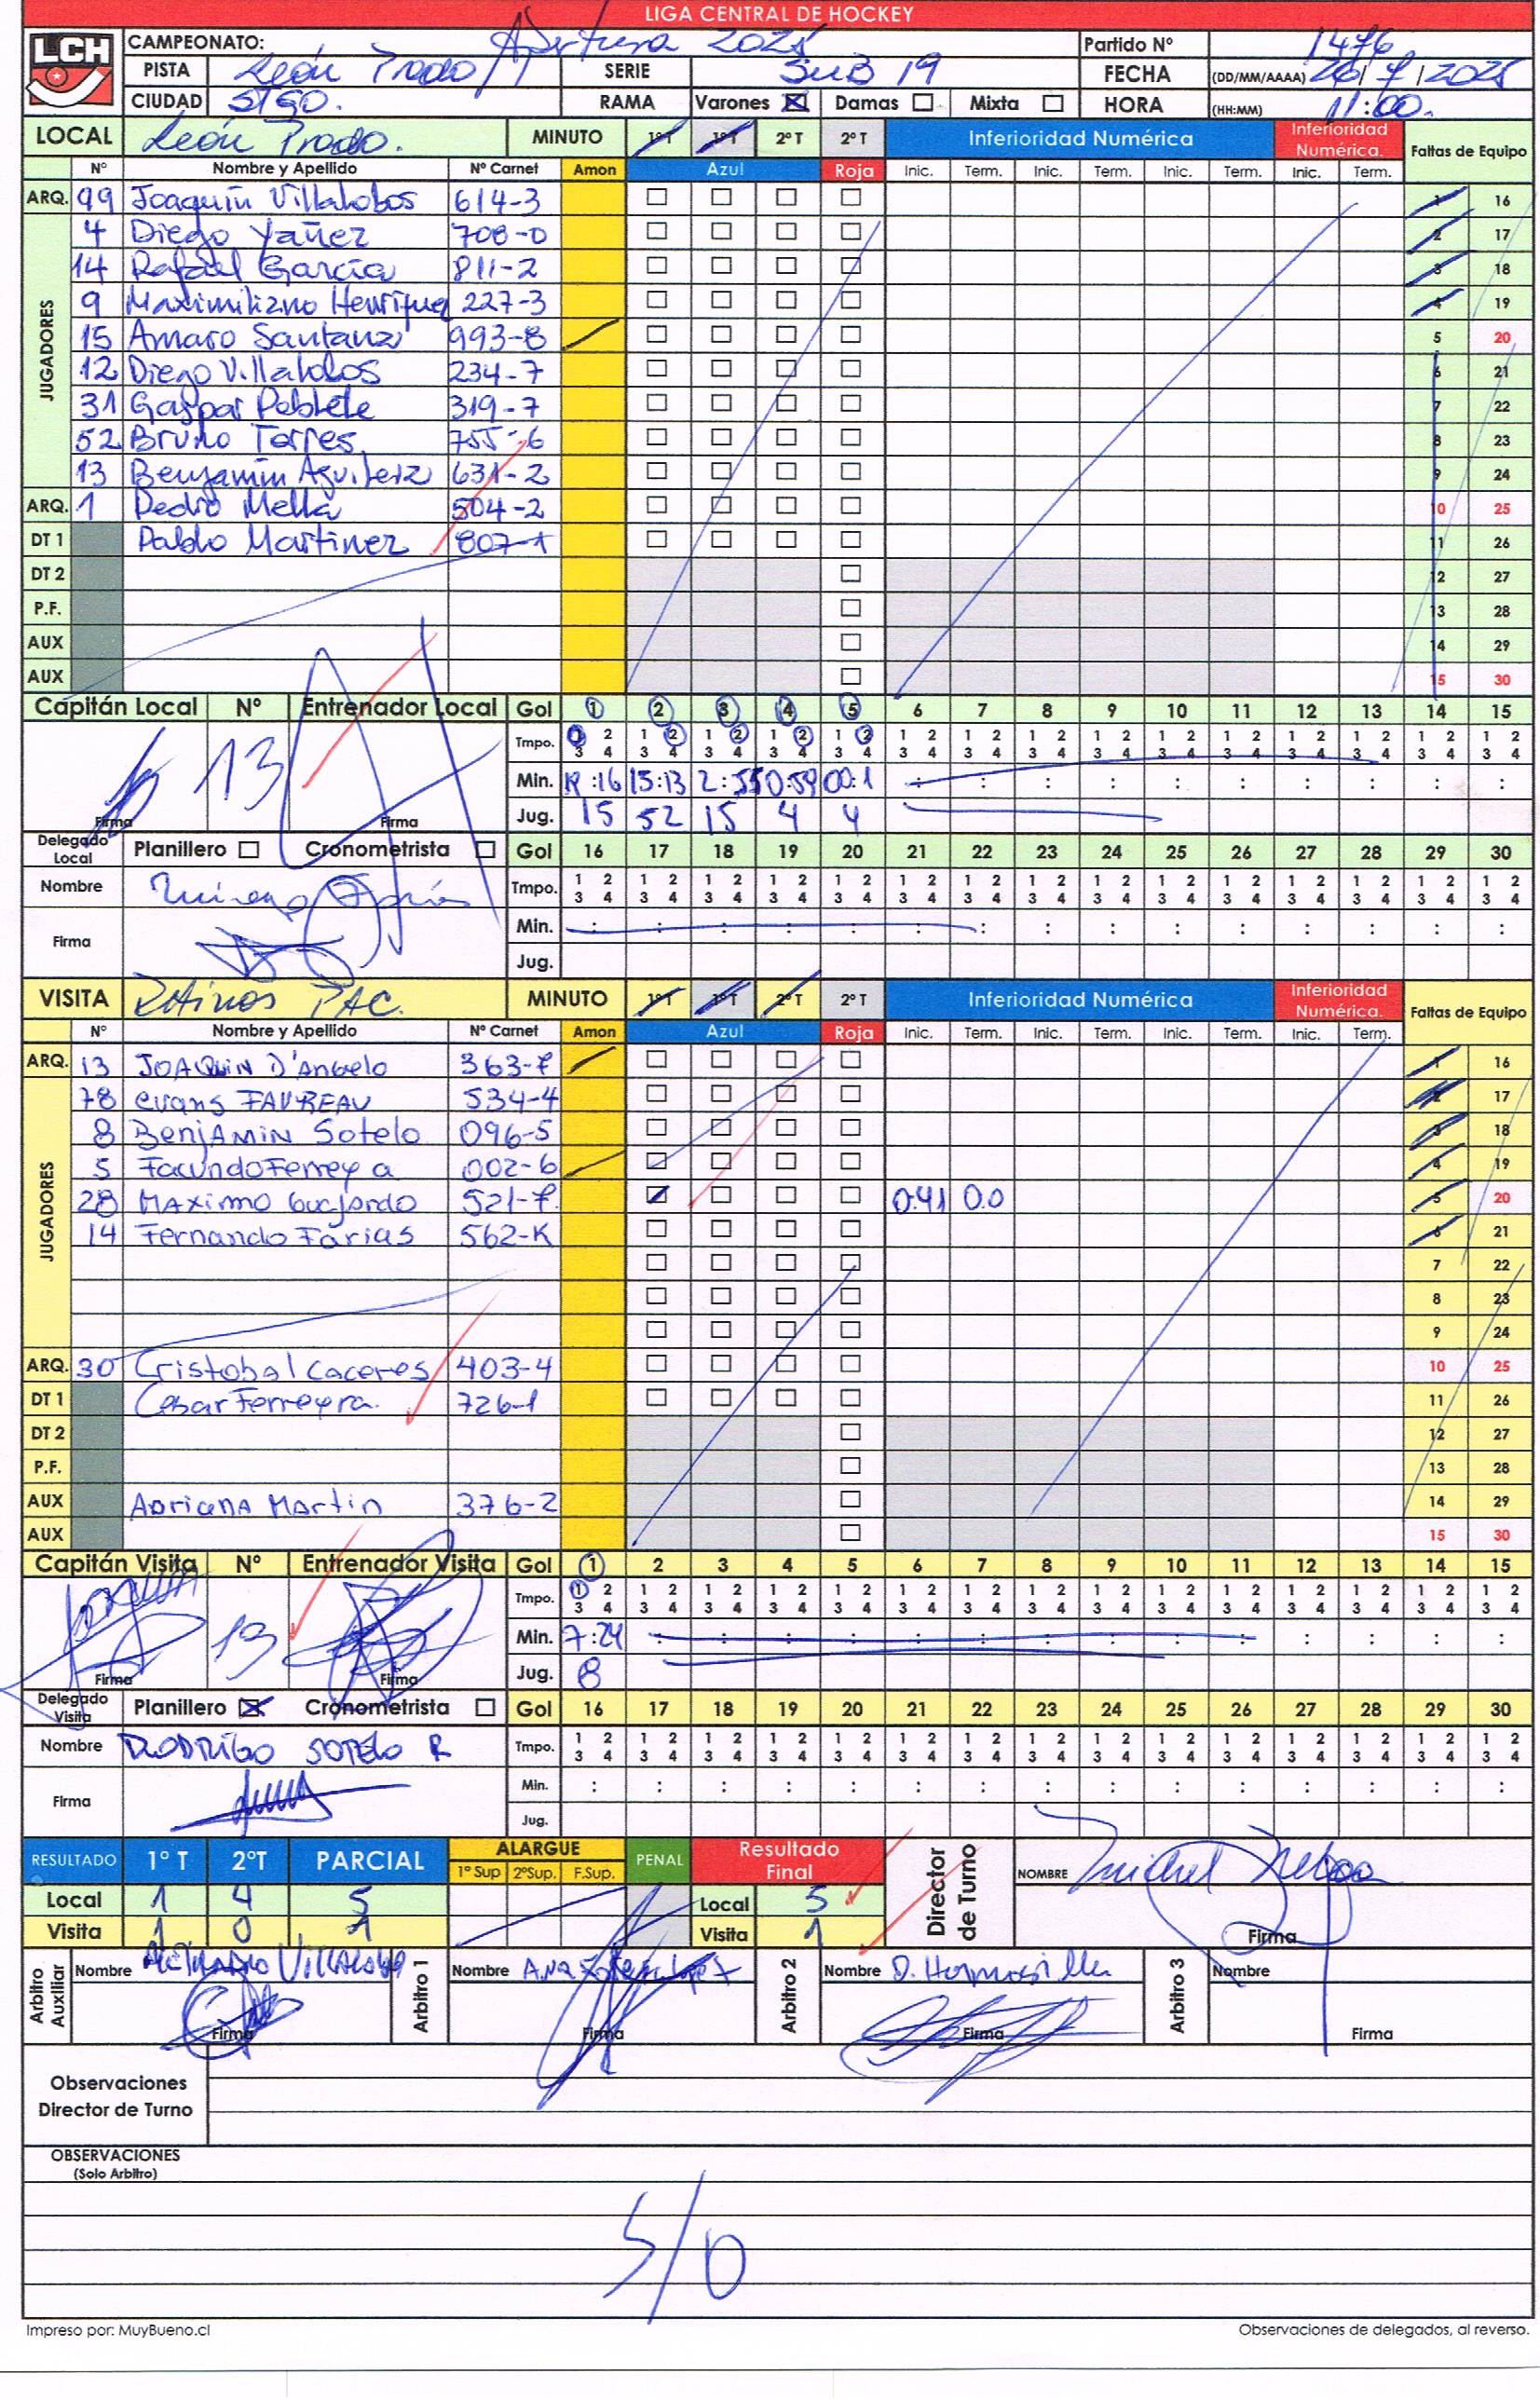 LIGA CENTRAL DE HOCKEY
LCH
CAMPEONATO: Apertura 2025 Partido Nº 1476
PISTA León Prado SERIE SUB 19 FECHA (DD/MM/AAAA) 26/7/2025
CIUDAD STGO. RAMA Varones Damas Mixta HORA (HH:MM) 11:00.
LOCAL León Prado. MINUTO 1º T 1º T 2º T 2º T Inferioridad Numérica Inferioridad Numérica. Faltas de Equipo
Nº Nombre y Apellido Nº Carnet Amon Azul Roja Inic. Term. Inic. Term. Inic. Term. Inic. Term.
ARQ. 99 Joaquín Villalobos 614-3 1 16
JUGADORES
4 Diego Yañez 708-0 2 17
14 Rafael García 811-2 3 18
9 Maximiliano Henríquez 227-3 4 19
15 Amaro Santana 993-8 5 20
12 Diego Villalobos 234-7 6 21
31 Gaspar Poblete 319-7 7 22
52 Bruno Torres 755-6 8 23
13 Benjamín Aguilera 631-2 9 24
ARQ. 1 Pedro Mella 504-2 10 25
DT 1 Pablo Martinez 807-1 11 26
DT 2 12 27
P.F. 13 28
AUX 14 29
AUX 15 30
Capitán Local Nº Entrenador Local Gol 1 2 3 4 5 6 7 8 9 10 11 12 13 14 15
Tmpo. 1 2 3 4 1 2 3 4 1 2 3 4 1 2 3 4 1 2 3 4 1 2 3 4 1 2 3 4 1 2 3 4 1 2 3 4 1 2 3 4 1 2 3 4 1 2 3 4 1 2 3 4 1 2 3 4 1 2 3 4
13 Min. :16 15:13 2:55 0:59 00:1 : : : : : : : : : :
Firma Firma Jug. 15 52 15 4 4
Delegado Local Planillero Cronometrista Gol 16 17 18 19 20 21 22 23 24 25 26 27 28 29 30
Nombre Tmpo. 1 2 3 4 1 2 3 4 1 2 3 4 1 2 3 4 1 2 3 4 1 2 3 4 1 2 3 4 1 2 3 4 1 2 3 4 1 2 3 4 1 2 3 4 1 2 3 4 1 2 3 4 1 2 3 4 1 2 3 4
Firma Min. : : : : : : : : : : : : : : :
Jug.
VISITA Rhinos PAC. MINUTO 1º T 1º T 2º T 2º T Inferioridad Numérica Inferioridad Numérica. Faltas de Equipo
Nº Nombre y Apellido Nº Carnet Amon Azul Roja Inic. Term. Inic. Term. Inic. Term. Inic. Term.
ARQ. 13 JOAQUIN D'Angelo 363-7 1 16
JUGADORES
78 evans FAVREAU 534-4 2 17
8 BenjAMIN Sotelo 096-5 3 18
5 Facundo Ferreya 002-6 4 19
28 MAximo Guajardo 521-7 0:41 0.0 5 20
14 Fernando Farias 562-K 6 21
7 22
8 23
9 24
ARQ. 30 Cristobal Caceres 403-4 10 25
DT 1 Cesar Ferreyra. 726-1 11 26
DT 2 12 27
P.F. 13 28
AUX Adriana Martin 376-2 14 29
AUX 15 30
Capitán Visita Nº Entrenador Visita Gol 1 2 3 4 5 6 7 8 9 10 11 12 13 14 15
Tmpo. 1 2 3 4 1 2 3 4 1 2 3 4 1 2 3 4 1 2 3 4 1 2 3 4 1 2 3 4 1 2 3 4 1 2 3 4 1 2 3 4 1 2 3 4 1 2 3 4 1 2 3 4 1 2 3 4 1 2 3 4
13 Min. 7:24 : : : : : : : : : : : : : :
Firma Firma Jug. 8
Delegado Visita Planillero Cronometrista Gol 16 17 18 19 20 21 22 23 24 25 26 27 28 29 30
Nombre RODRIGO SOTELO R Tmpo. 1 2 3 4 1 2 3 4 1 2 3 4 1 2 3 4 1 2 3 4 1 2 3 4 1 2 3 4 1 2 3 4 1 2 3 4 1 2 3 4 1 2 3 4 1 2 3 4 1 2 3 4 1 2 3 4 1 2 3 4
Firma Min. : : : : : : : : : : : : : : :
Jug.
RESULTADO 1º T 2ºT PARCIAL ALARGUE 1º Sup 2ºSup. F.Sup. PENAL Resultado Final Director de Turno NOMBRE
Local 1 4 5 Local 5
Visita 1 0 1 Visita 1 Firma
Arbitro Auxiliar Nombre Arbitro 1 Nombre Arbitro 2 Nombre D. Hermosilla Arbitro 3 Nombre
Firma Firma Firma Firma
Observaciones
Director de Turno
OBSERVACIONES
(Solo Arbitro)
S/O
Impreso por: MuyBueno.cl Observaciones de delegados, al reverso.